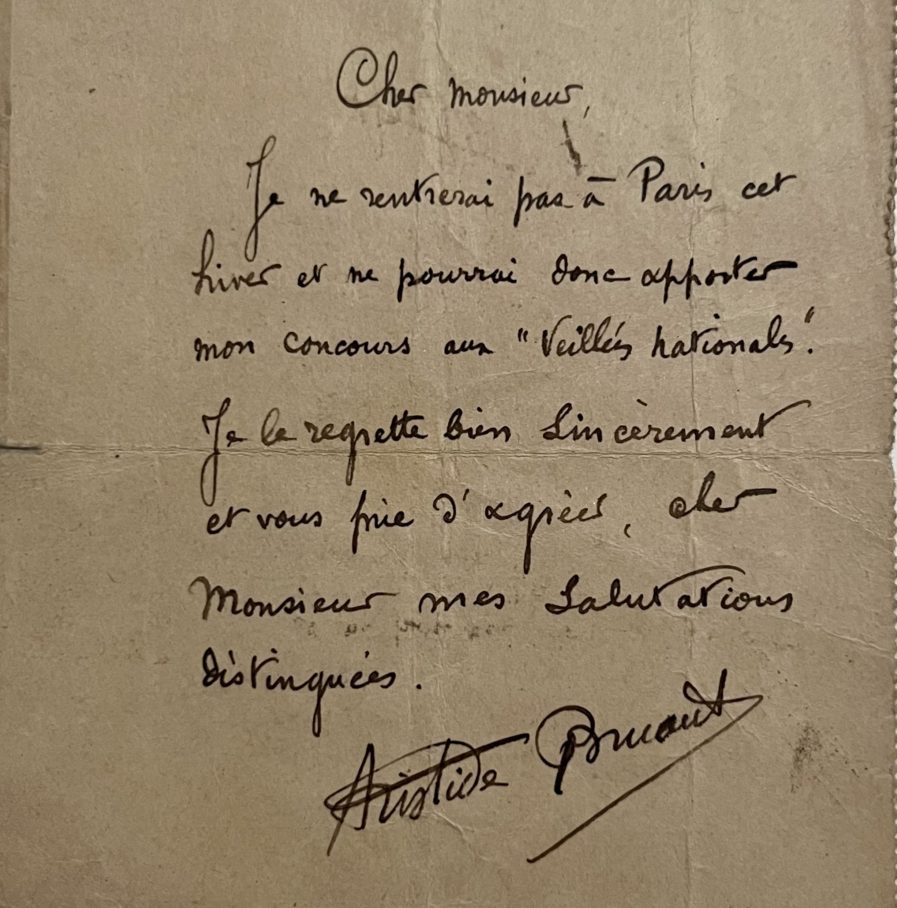 Cher monsieur,
Je ne rentrerai pas à Paris cet
hiver et ne pourrai donc apporter
mon concours aux "Veillées nationales".
Je le regrette bien sincèrement
et vous prie d'agréer, cher
Monsieur mes salutations
distinguées.
Aristide Bruant